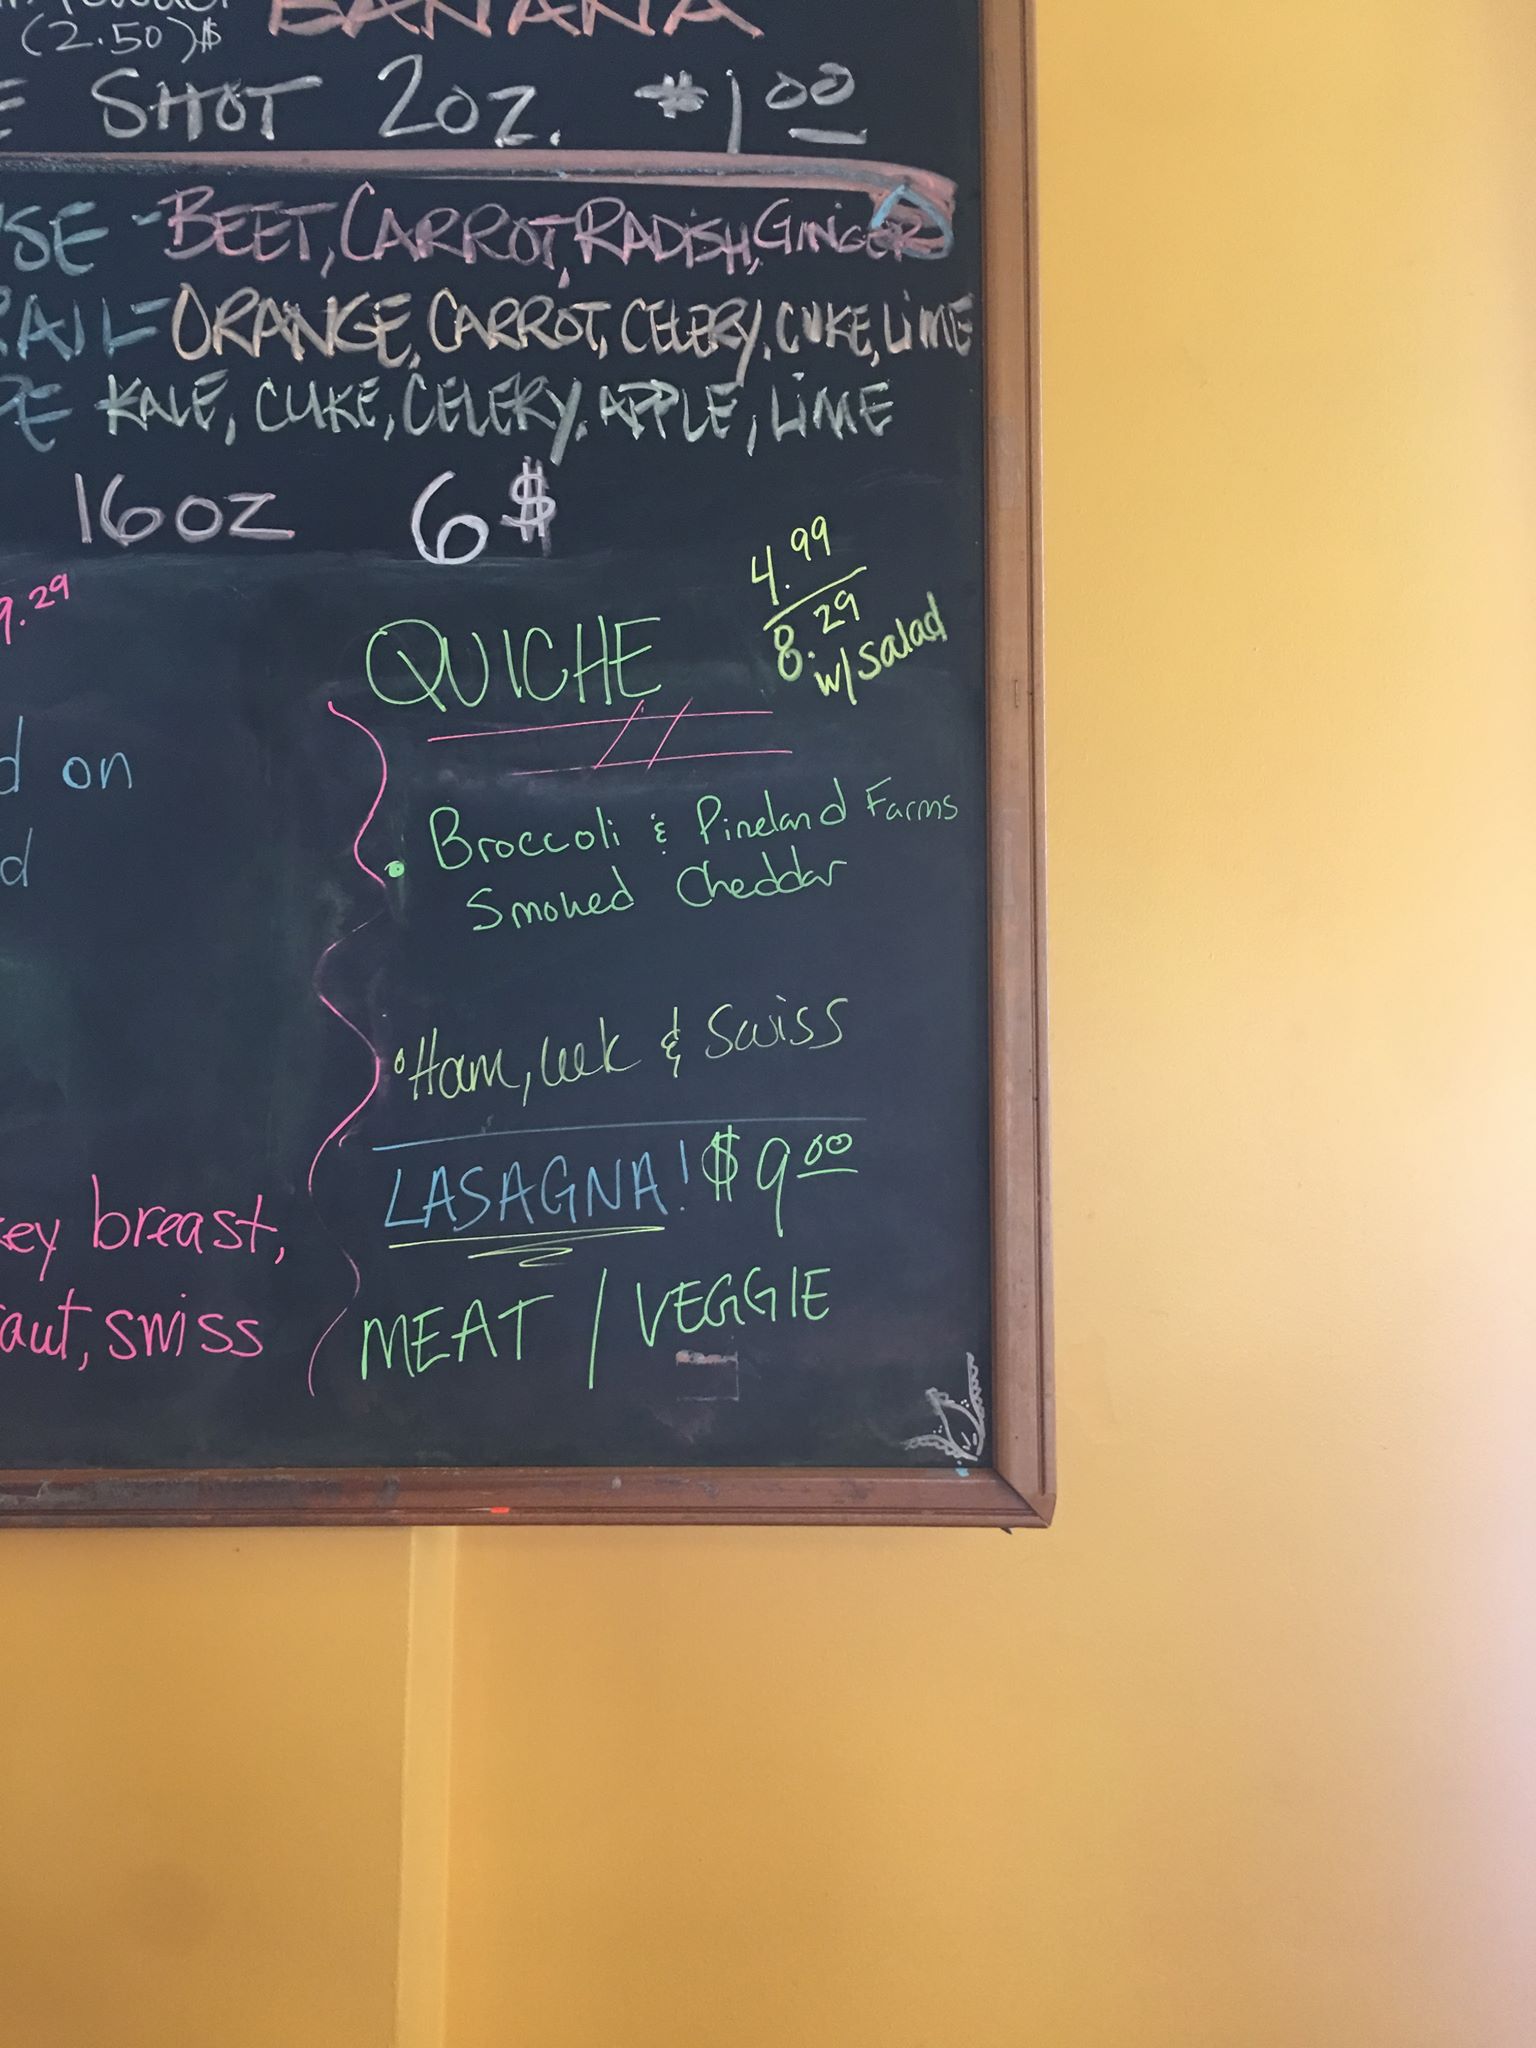 (2.50)$ BANANA
SHOT 2oz. $1.00
-BEET, CARROT, RADISH, GINGER
-ORANGE, CARROT, CELERY, CUKE, LIME
KALE, CUKE, CELERY, APPLE, LIME
16oz 6$
9.29
on
QUICHE
4.99
8.29
w/ salad
• Broccoli & Pineland Farms
Smoked Cheddar
• Ham, leek & Swiss
LASAGNA! $9.00
MEAT / VEGGIE
breast,
swiss